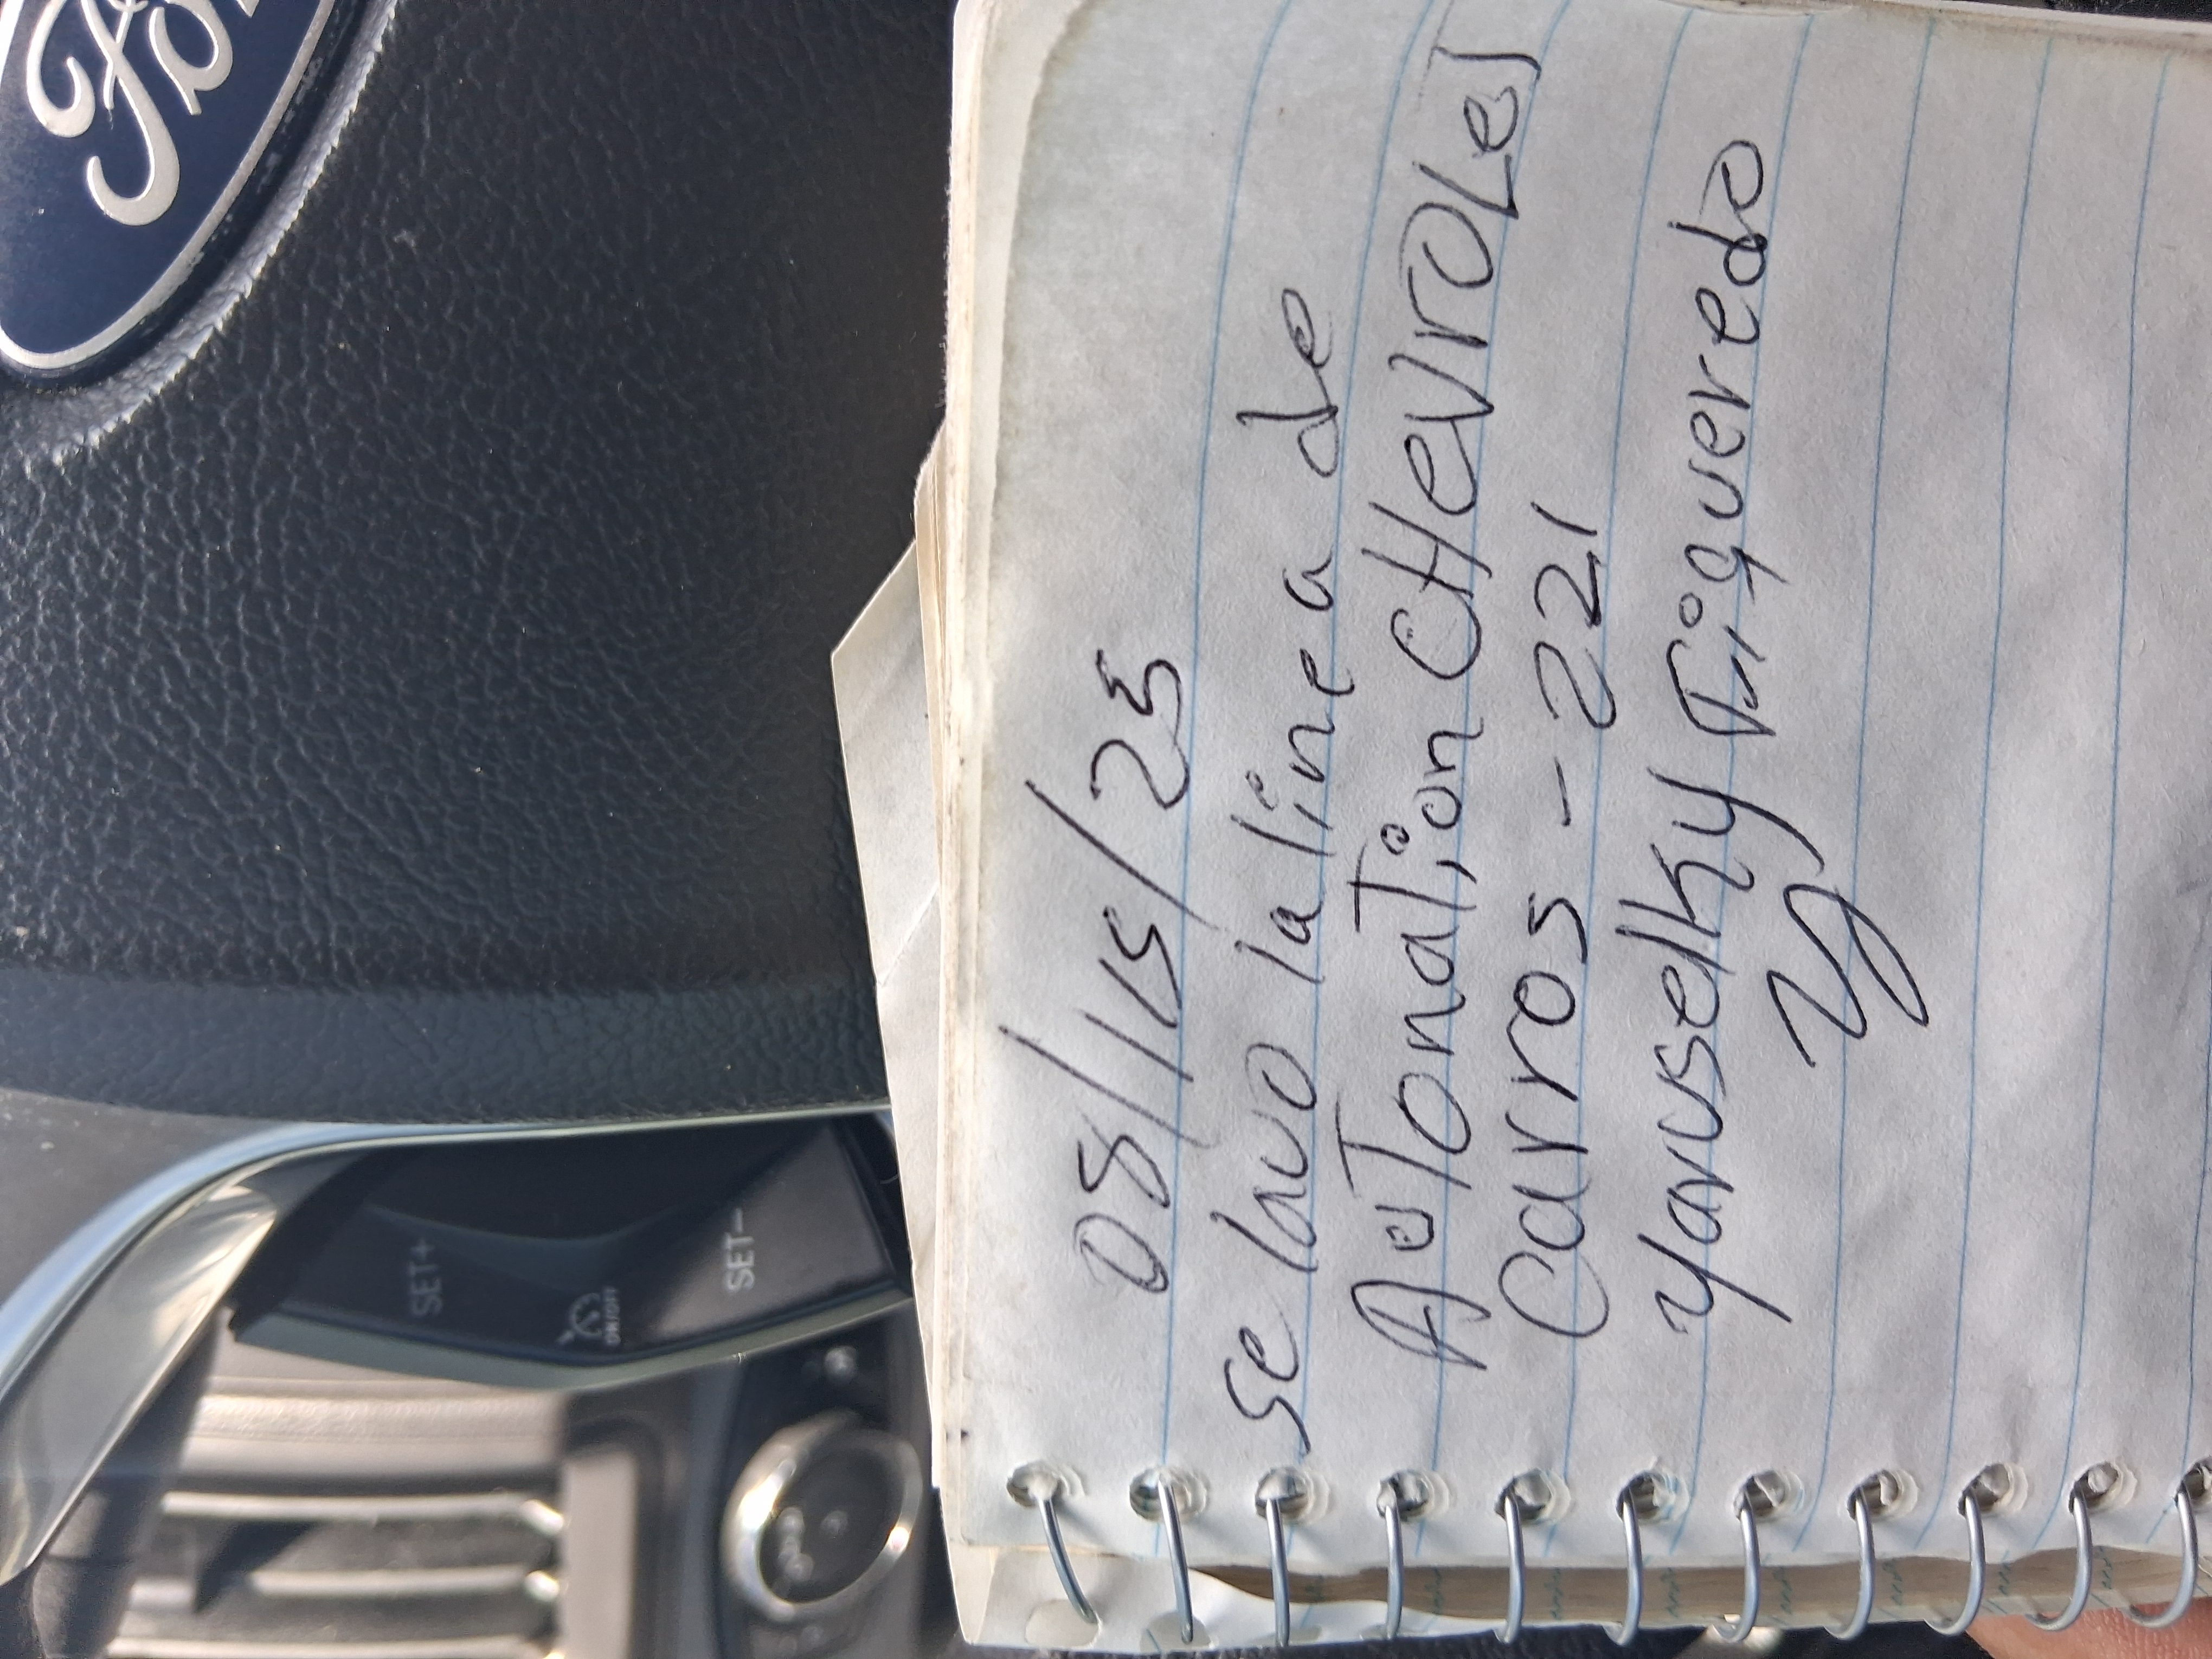 Ford
SET+
ON/OFF
SET-
08/15/23
se lavo la linea de
AuTonaTion CHevroLeT
Carros - 221
Yaruselky Figueredo